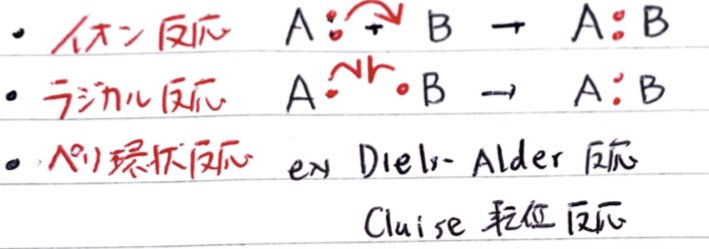 ・イオン反応 A: + B → A:B
・ラジカル反応 A・ ・B → A:B
・ペリ環状反応 ex Diels-Alder 反応
Cluise 転位反応